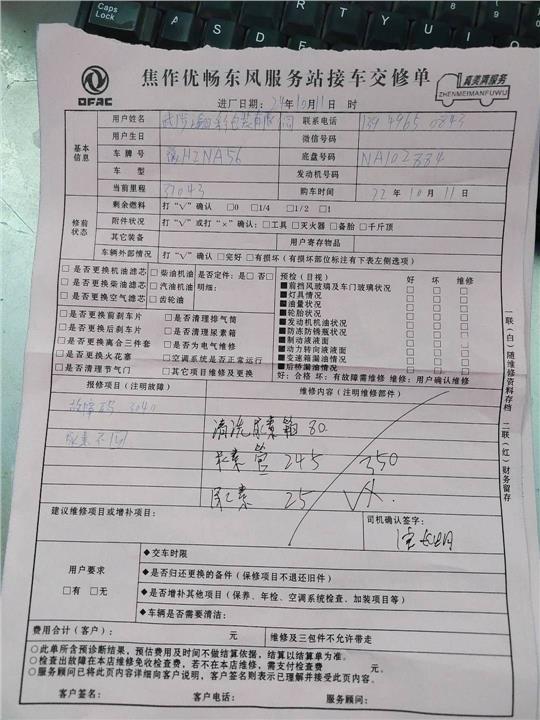 Caps Lock
A
S
D
R
T
Y
U
DFAC
焦作优畅东风服务站接车交修单
真美满服务
ZHENMEIMANFUWU
进厂日期：24年10月11日 时
基本信息
用户姓名
联系电话
用户生日
微信号码
车牌号 豫H2NA56
底盘号码 NA102884
车型
发动机号码
当前里程 37043
购车时间 22年10月11日
修前状态
剩余燃料 打“√”确认 □0 □1/4 □1/2 □1
附件状况 打“√”或打“×”确认：□工具 □灭火器 □备胎 □千斤顶
其它装备
用户寄存物品
车辆外部情况 打“√”确认 □完好 □有损坏（有损坏部位标注有下表左侧选项）
□是否更换机油滤芯 □柴油机油 是否定件：是□否□
□是否更换柴油滤芯 □汽油机油 明细：
□是否更换空气滤芯 □齿轮油
□是否更换前刹车片 □是否清理排气筒
□是否更换后刹车片 □是否清理尿素箱
□是否更换离合三件套 □是否为电气维修
□是否更换火花塞 □空调系统是否正常运行
□是否清理节气门 □其它项目维修及更换
预检（目视） 好 坏 维修
■前挡风玻璃及车门玻璃状况 □ □ □
■灯具情况 □ □ □
■油量状况 □ □ □
■轮胎状况 □ □ □
■发动机机油状况 □ □ □
■防冻防锈瓶状况 □ □ □
■制动液液面 □ □ □
■动力转向液液面 □ □ □
■变速箱漏油情况 □ □ □
■后桥漏油情况 □ □ □
好：合格 坏：有故障需维修 维修：用户确认维修
报修项目（注明故障）
维修内容（注明维修部件）
清洗尿素箱 80.
尿素管 245 350
尿素 25
建议维修项目或增补项目：
司机确认签字：
用户要求
□有 □无
◆交车时限
◆是否归还更换的备件（保修项目不退还旧件）
◆是否增补其他项目（保养、年检、空调系统检查、加装项目等）
◆车辆是否需要清洁：
费用合计（客户）： 元
维修及三包件不允许带走
○此单所含预诊断结果，预估费用及时间不做结算依据，结算以结算单为准。
○检查出故障在本店维修免收检查费，若不在本店维修，需支付检查费 元。
○服务顾问已将此页内容详细向客户说明，客户签名则表示已理解并接受此页内容。
客户签名： 客户电话： 服务顾问：
一联（白）随维修资料存档 二联（红）财务留存